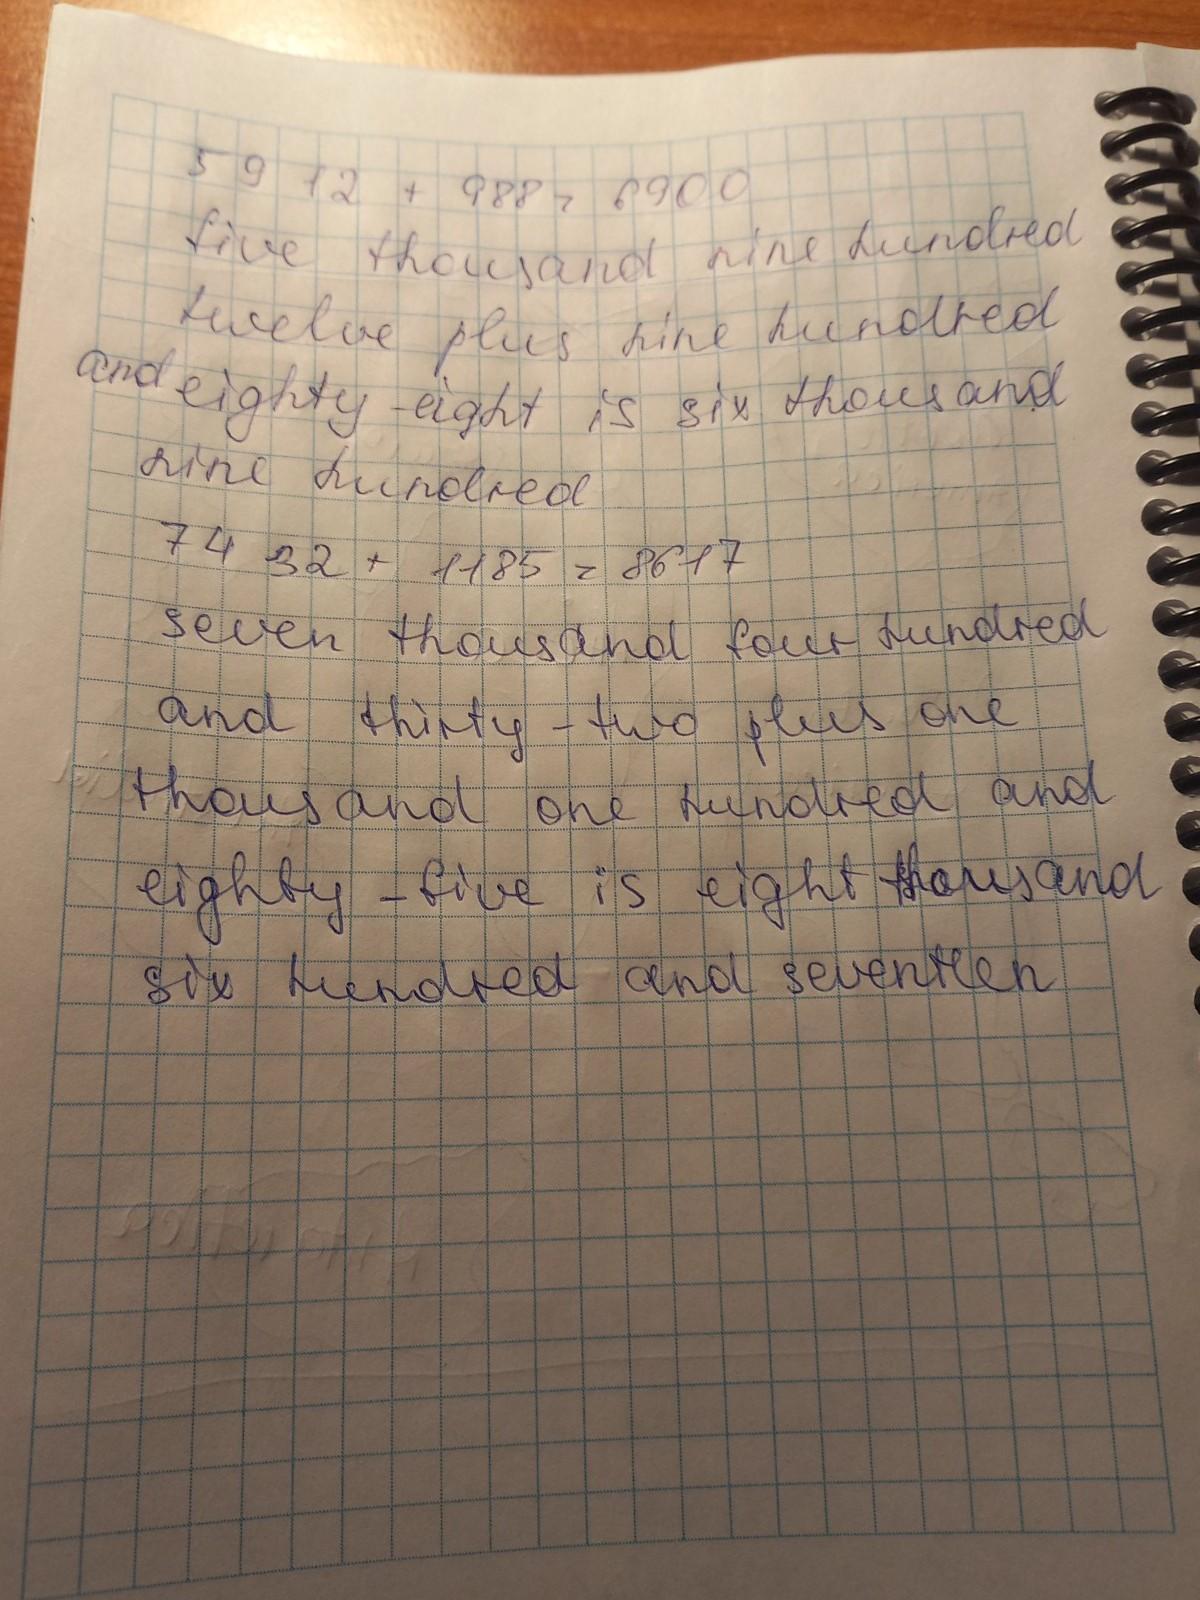 5912 + 988 = 6900
five thousand nine hundred
twelve plus nine hundred
and eighty-eight is six thousand
nine hundred
7432 + 1185 = 8617
seven thousand four hundred
and thirty-two plus one
thousand one hundred and
eighty-five is eight thousand
six hundred and seventeen